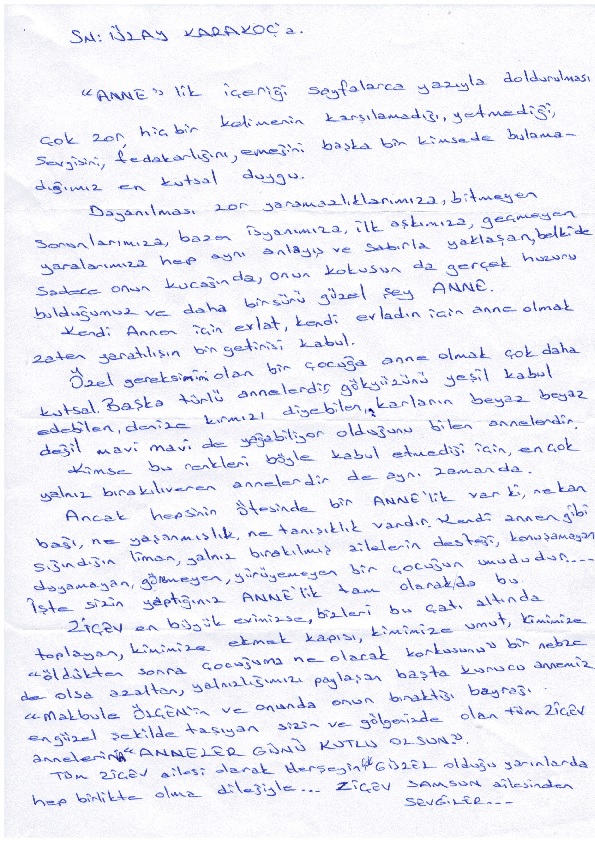 SN: ÜLAY KARAKOÇ'a.
"ANNE" lik içeriği sayfalarca yazıyla doldurulması
çok zor, hiç bir kelimenin karşılamadığı, yetmediği,
Sevgisini, fedakarlığını, emeğini başka bir kimsede bulama-
dığımız en kutsal duygu.
Dayanılması zor yaramazlıklarımıza, bitmeyen
sorunlarımıza, bazen isyanımıza, ilk aşkımıza, geçmeyen
yaralarımıza hep aynı anlayış ve sabırla yaklaşan, belki de
Sadece onun kucağında, onun kokusun da gerçek huzuru
bulduğumuz ve daha birsürü güzel şey ANNE.
Kendi Annen için evlat, kendi evladın için anne olmak
zaten yaratılışın bir getirisi kabul.
Özel gereksinimi olan bir çocuğa anne olmak çok daha
kutsal. Başka türlü annelerdir gökyüzünü yeşil kabul
edebilen, denize kırmızı diyebilen, karların beyaz beyaz
değil mavi mavi de yağabiliyor olduğunu bilen annelerdir.
Kimse bu renkleri böyle kabul etmediği için, en çok
yalnız bırakılıveren annelerdir de aynı zamanda.
Ancak hepsinin ötesinde bir ANNE'lik var ki, ne kan
bağı, ne yaşanmışlık, ne tanışıklık vardır. Kendi annen gibi
sığındığın liman, yalnız bırakılmış ailelerin desteği, konuşamayan
duyamayan, görmeyen, yürüyemeyen bir çocuğun umududur....
İşte sizin yaptığınız ANNE'lik tam olarakda bu.
ZİÇEV en büyük evimizse, bizleri bu çatı altında
toplayan, kimimize ekmek kapısı, kimimize umut, kimimize
"öldükten sonra çocuğuma ne olacak korkusunu" bir nebze
de olsa azaltan, yalnızlığımızı paylaşan başta kurucu annemiz
"Makbule ÖLÇEN'in ve onunda onun bıraktığı bayrağı
en güzel şekilde taşıyan sizin ve gölgenizde olan tüm ZİÇEV
annelerinin "ANNELER GÜNÜ KUTLU OLSUN".
Tüm ZİÇEV ailesi olarak Herşeyin "GÜZEL olduğu yarınlarda
hep birlikte olma dileğiyle... ZİÇEV SAMSUN ailesinden
SEVGİLER...